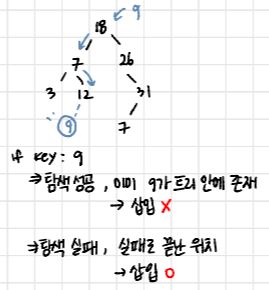 18 9
7 26
3 12 31
9 7
if key : 9
⇒ 탐색 성공, 이미 9가 트리 안에 존재
→ 삽입 X
⇒ 탐색 실패, 실패로 끝난 위치
→ 삽입 O